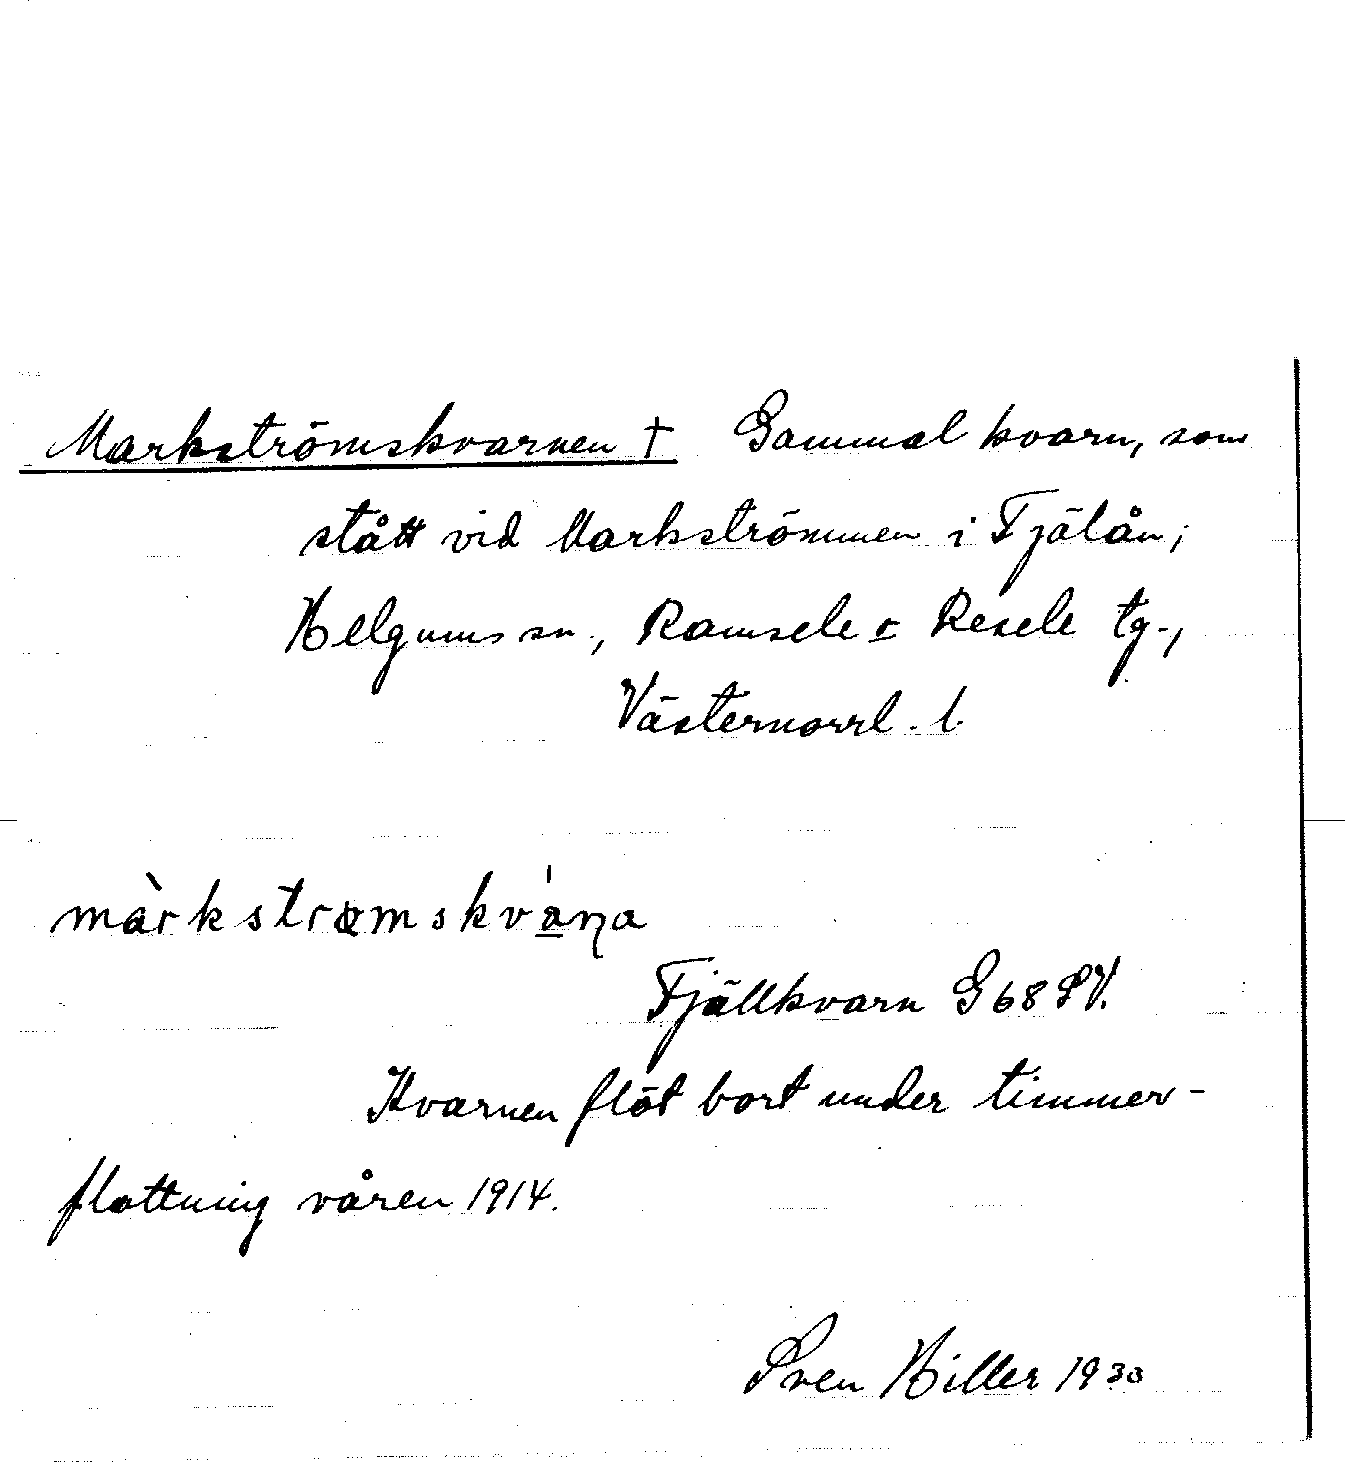 Markströmskvarnen † Gammal kvarn, som
stått vid Markströmmen i Fjälån;
Helgums sn., Ramsele o Resele tg.,
Västernorrl. l.
màrkstrœmskvána
Fjällkvarn G 68 SV.
Kvarnen flöt bort under timmer-
flottning våren 1914.
Sven Hiller 1930